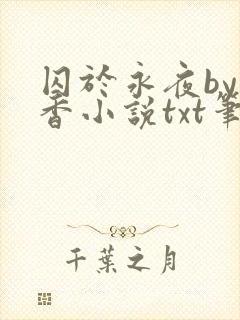 囚於永夜by
香小說txt筆
千葉之月